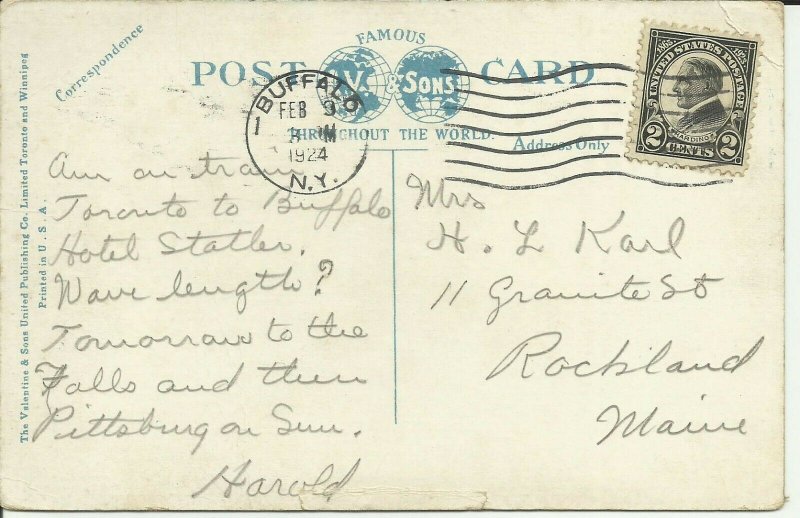 Correspondence
FAMOUS
POST V. & SONS CARD
THROUGHOUT THE WORLD.
Address Only
The Valentine & Sons United Publishing Co. Limited Toronto and Winnipeg
Printed in U. S. A.
BUFFALO
FEB 9
M
1924
N.Y.
1
1865 1923
UNITED STATES POSTAGE
HARDING
2 CENTS 2
Am on train
Toronto to Buffalo
Hotel Statler.
Wave length?
Tomorrow to the
Falls and then
Pittsburg on Sun.
Harold
Mrs
H. L Karl
11 Granite St
Rockland
Maine